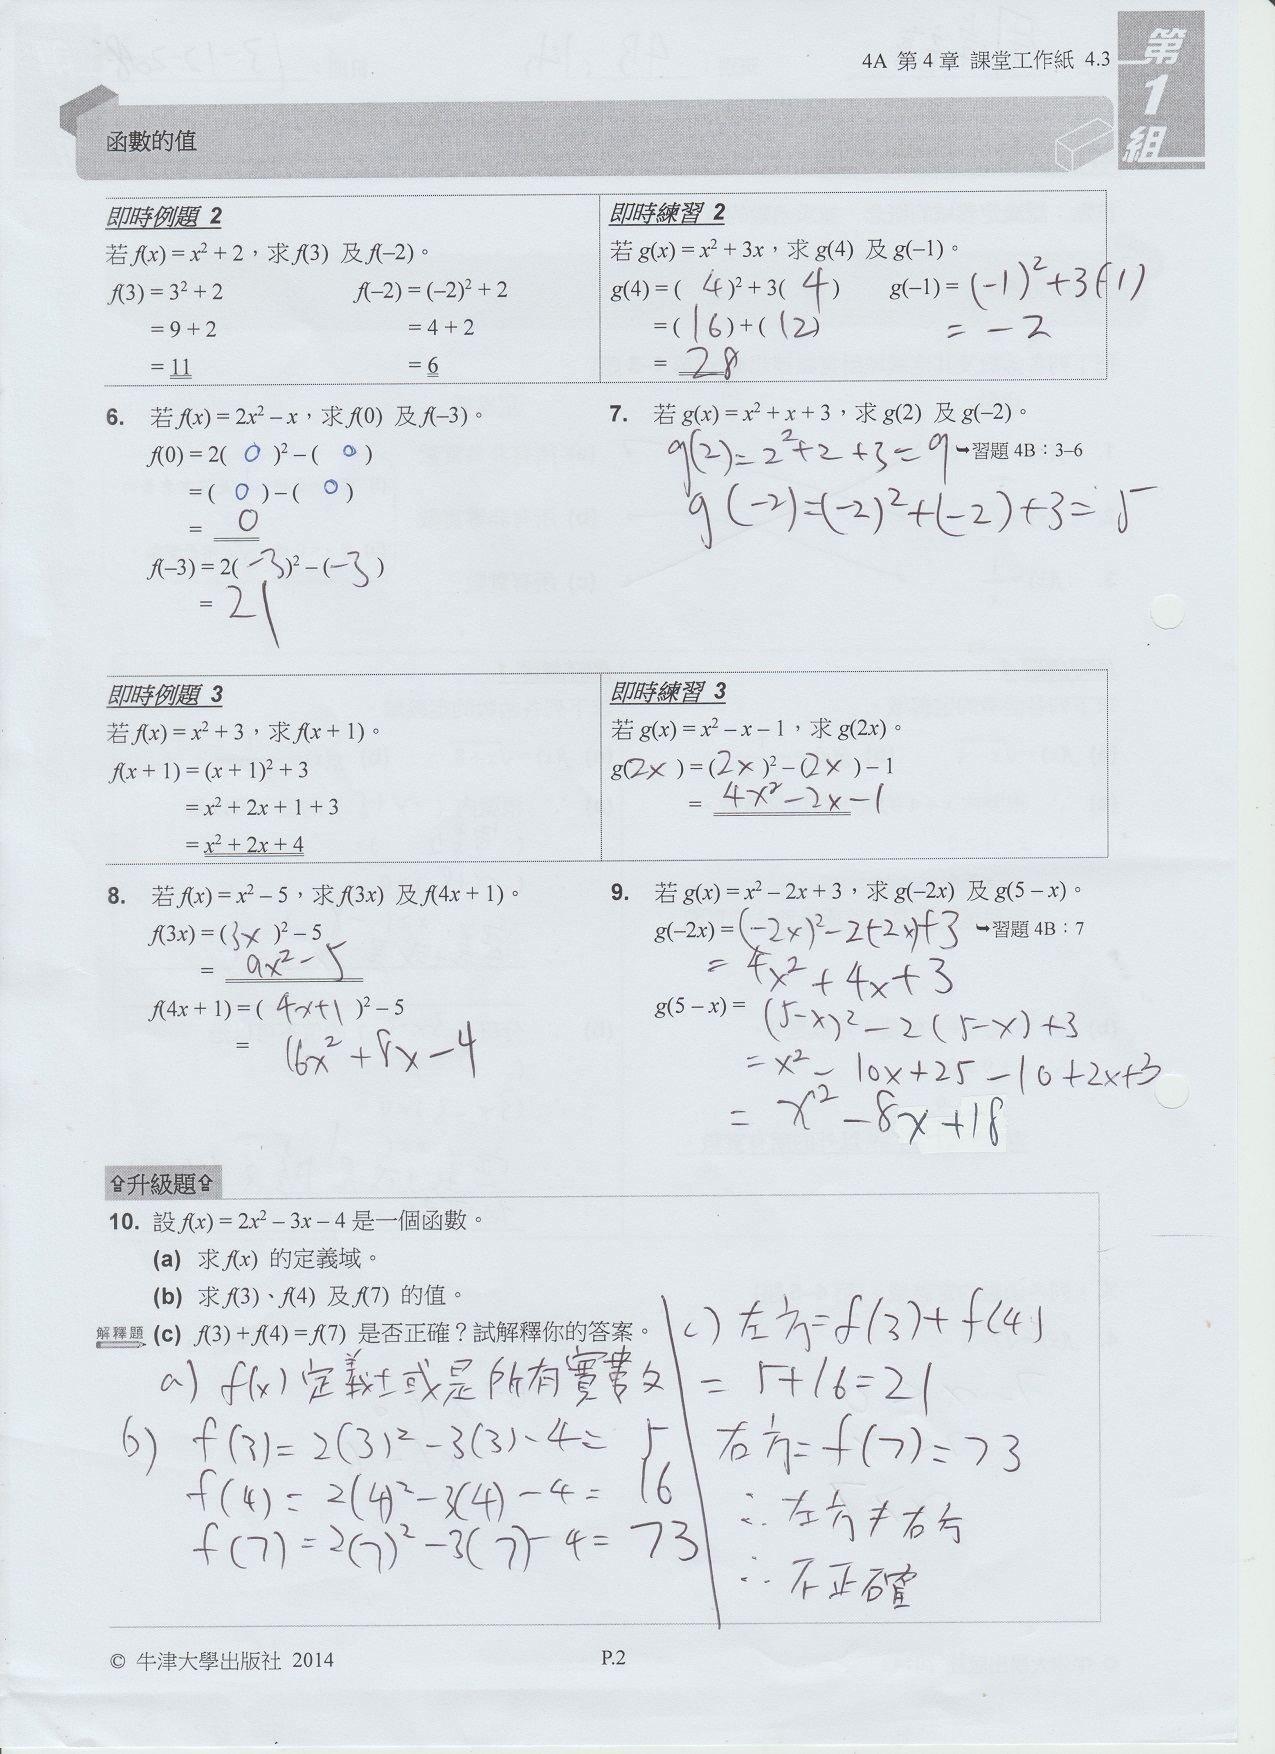 4A 第 4 章 課堂工作紙 4.3
第1組
函數的值
即時例題 2
若 f(x) = x² + 2，求 f(3) 及 f(–2)。
f(3) = 3² + 2 f(–2) = (–2)² + 2
= 9 + 2 = 4 + 2
= 11 = 6
即時練習 2
若 g(x) = x² + 3x，求 g(4) 及 g(–1)。
g(4) = ( 4 )² + 3( 4 ) g(–1) = (-1)² + 3(-1)
= ( 16 ) + ( 12 ) = -2
= 28
6. 若 f(x) = 2x² – x，求 f(0) 及 f(–3)。
f(0) = 2( 0 )² – ( 0 )
= ( 0 ) – ( 0 )
= 0
f(–3) = 2( -3 )² – ( -3 )
= 21
7. 若 g(x) = x² + x + 3，求 g(2) 及 g(–2)。
g(2) = 2² + 2 + 3 = 9 ➥習題 4B：3–6
g(-2) = (-2)² + (-2) + 3 = 5
即時例題 3
若 f(x) = x² + 3，求 f(x + 1)。
f(x + 1) = (x + 1)² + 3
= x² + 2x + 1 + 3
= x² + 2x + 4
即時練習 3
若 g(x) = x² – x – 1，求 g(2x)。
g( 2x ) = ( 2x )² – ( 2x ) – 1
= 4x² - 2x - 1
8. 若 f(x) = x² – 5，求 f(3x) 及 f(4x + 1)。
f(3x) = ( 3x )² – 5
= 9x² - 5
f(4x + 1) = ( 4x+1 )² – 5
= 16x² + 8x - 4
9. 若 g(x) = x² – 2x + 3，求 g(–2x) 及 g(5 – x)。
g(–2x) = (-2x)² - 2(-2x) + 3 ➥習題 4B：7
= 4x² + 4x + 3
g(5 – x) = (5-x)² - 2(5-x) + 3
= x² - 10x + 25 - 10 + 2x + 3
= x² - 8x + 18
⇧升級題⇧
10. 設 f(x) = 2x² – 3x – 4 是一個函數。
(a) 求 f(x) 的定義域。
(b) 求 f(3)、f(4) 及 f(7) 的值。
解釋題 (c) f(3) + f(4) = f(7) 是否正確？試解釋你的答案。
a) f(x) 定義域是所有實數
b) f(3) = 2(3)² - 3(3) - 4 = 5
f(4) = 2(4)² - 3(4) - 4 = 16
f(7) = 2(7)² - 3(7) - 4 = 73
c) 左方 = f(3) + f(4)
= 5 + 16 = 21
右方 = f(7) = 73
∴ 左方 ≠ 右方
∴ 不正確
© 牛津大學出版社 2014 P.2